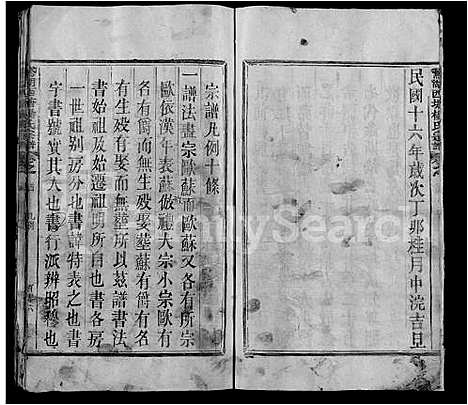 民國十六年歲次丁卯桂月中浣吉旦
宗譜凡例十條
一譜法盡宗歐蘇而歐蘇又各有所宗
歐依漢年表蘇做禮大宗小宗歐有
名有爵而無生歿娶塟蘇有爵有名
有生歿有娶而無塟所以茲譜書法
書始祖及始遷祖明所自也書各房
一世祖別房分也書諱特表之也書
字書號實其人也書行派辨昭穆也
FamilySearch